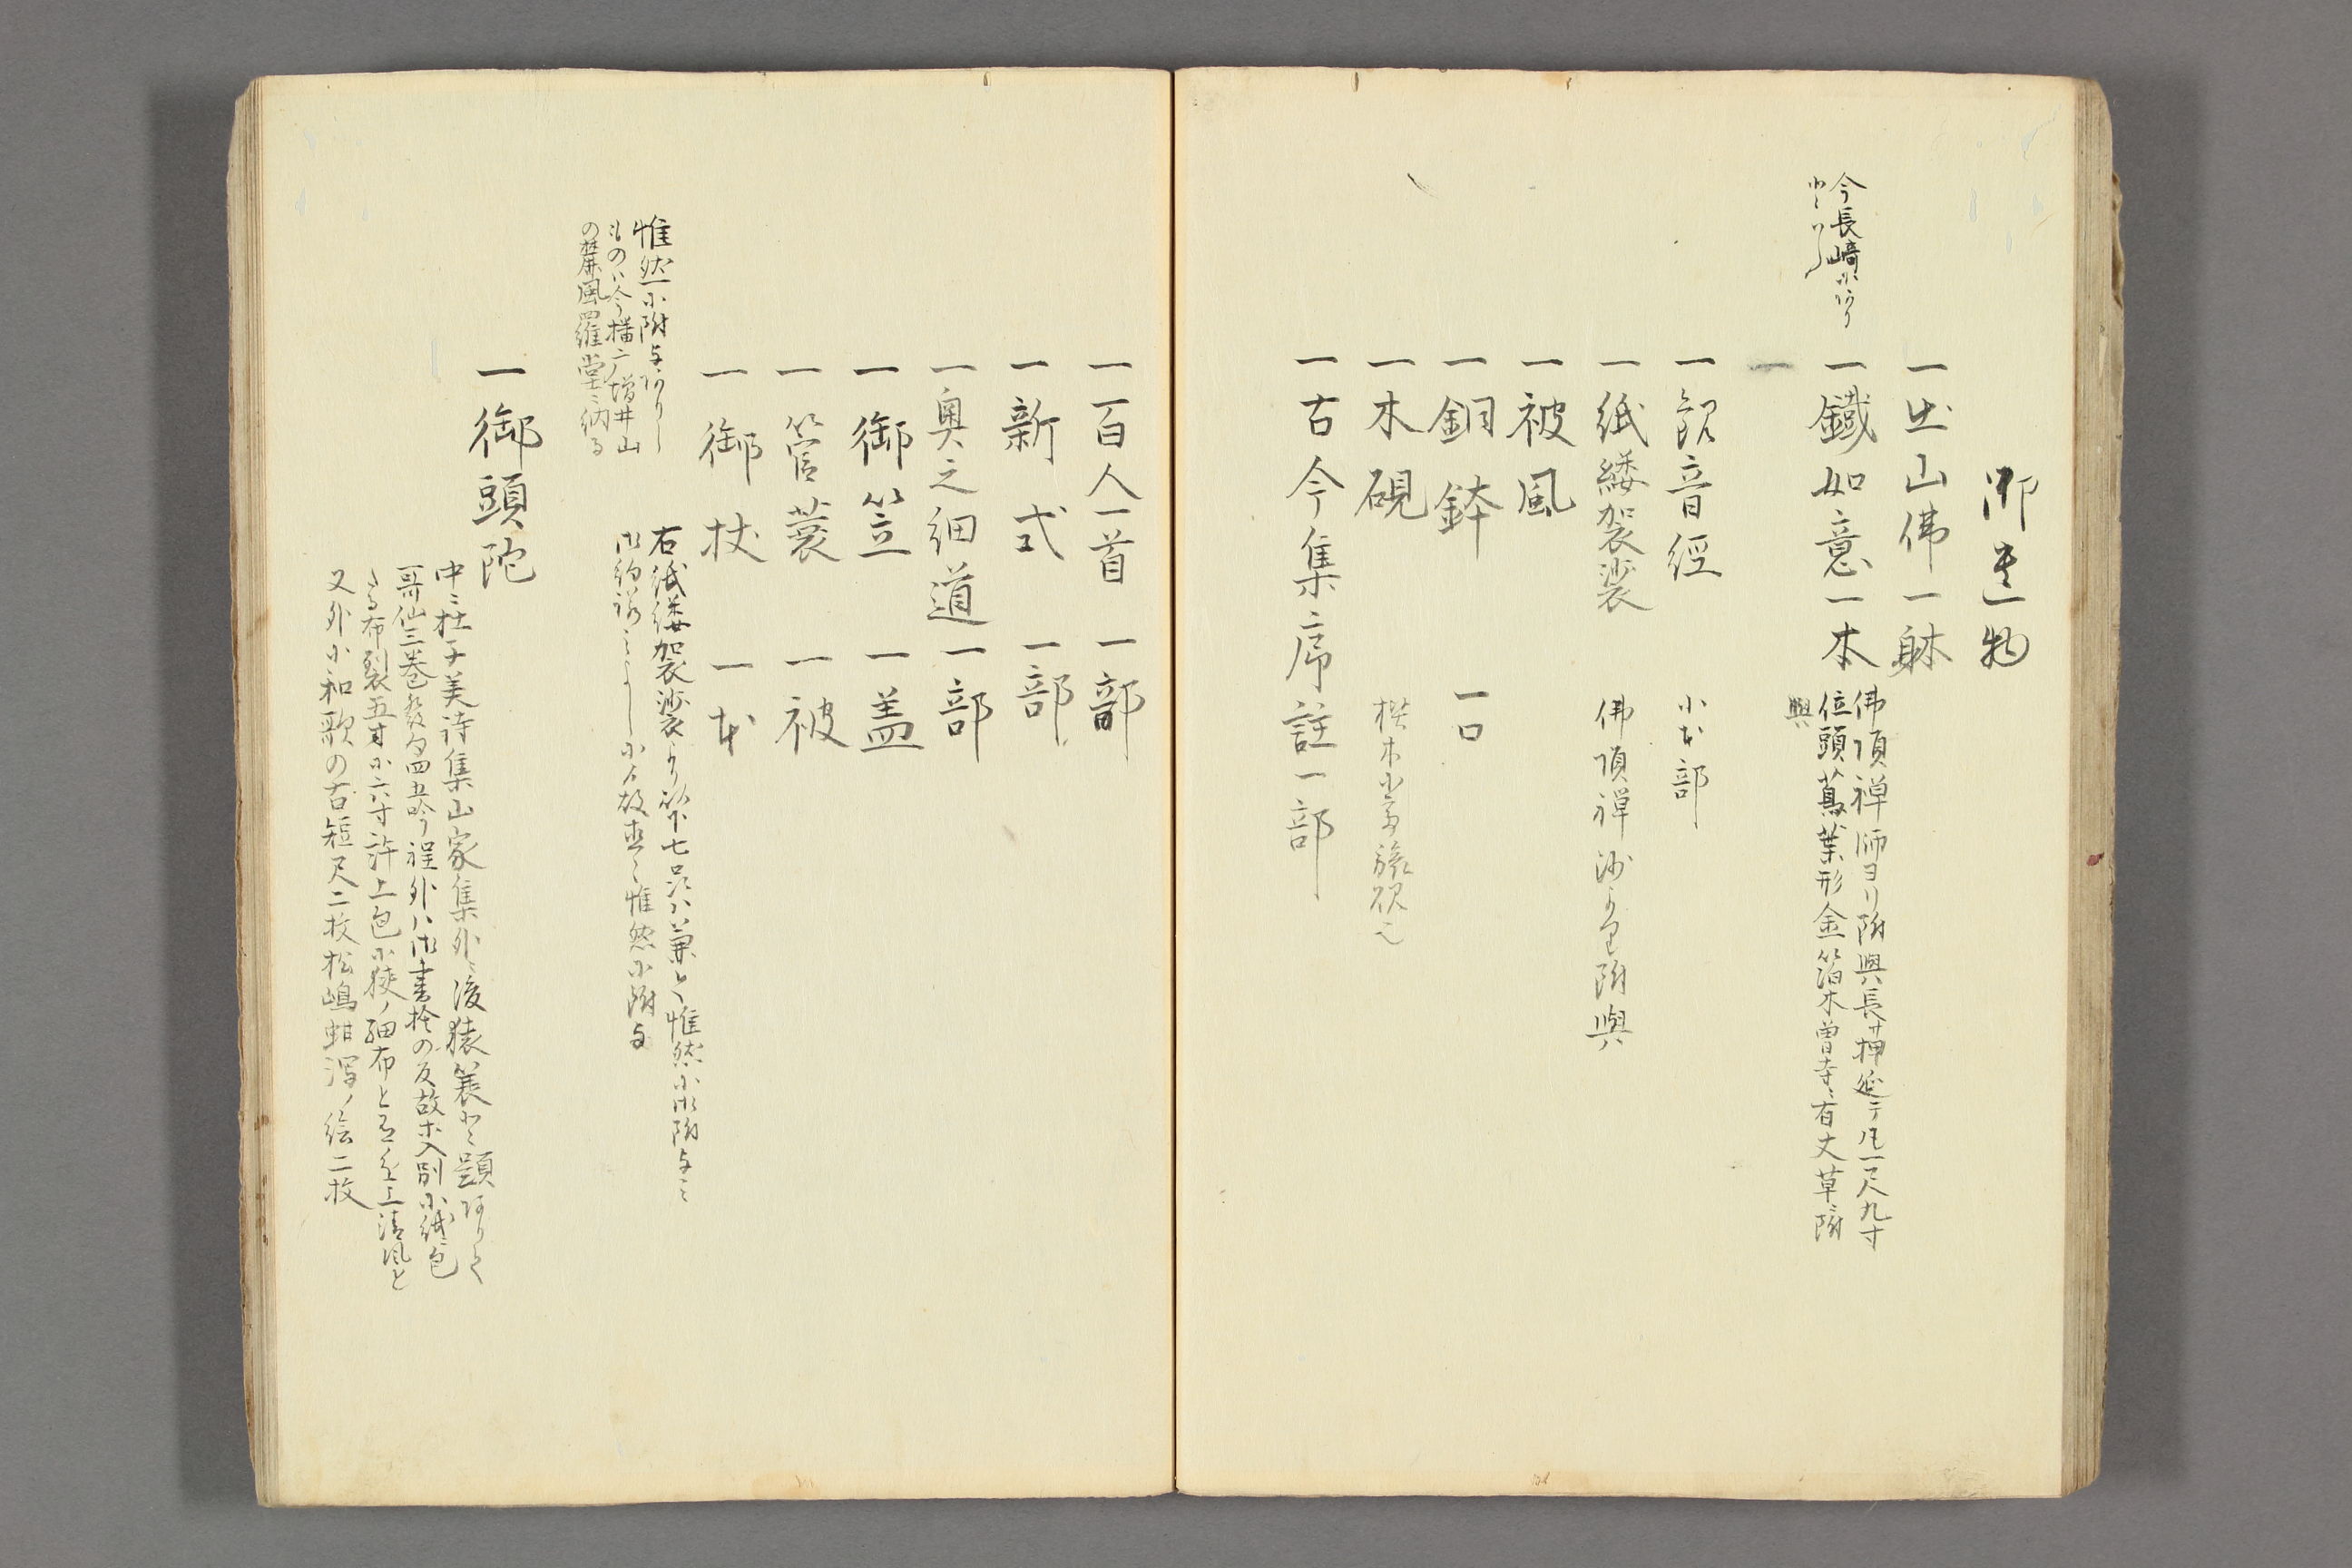 御遺物
一出山佛一躰
今長﨑にあり
一鐵如意一本
佛頂禅師ヨリ附與長サ押延テ凡一尺九寸
位頭蔦葉形金箔木曽寺ニ有丈草ニ附
與
一
一観音經 小本部
一紙縷袈裟 佛頂禅師より附與
一被風
一銅鉢 一口
一木硯
一古今集序註一部
一百人一首 一部
一新式 一部
一奥之細道一部
一御笠 一盖
一菅蓑 一被
一御杖 一本
右紙縷袈裟より以下七品ハ兼て惟然に御附与之
惟然に附与
惟然に附与ありし
ものハ今播ニ増井山
の麓風羅堂ニ納る
一御頭陀
中ニ杜子美詩集山家集外ニ後猿蓑と題ありて
哥仙三巻発句四五吟程外ハ御書捨の反故等入別に紙包
たる布裂五寸に六寸許上包に狭ノ細布と
又外に和歌の古短尺二枚松嶋蚶潟ノ絵二枚